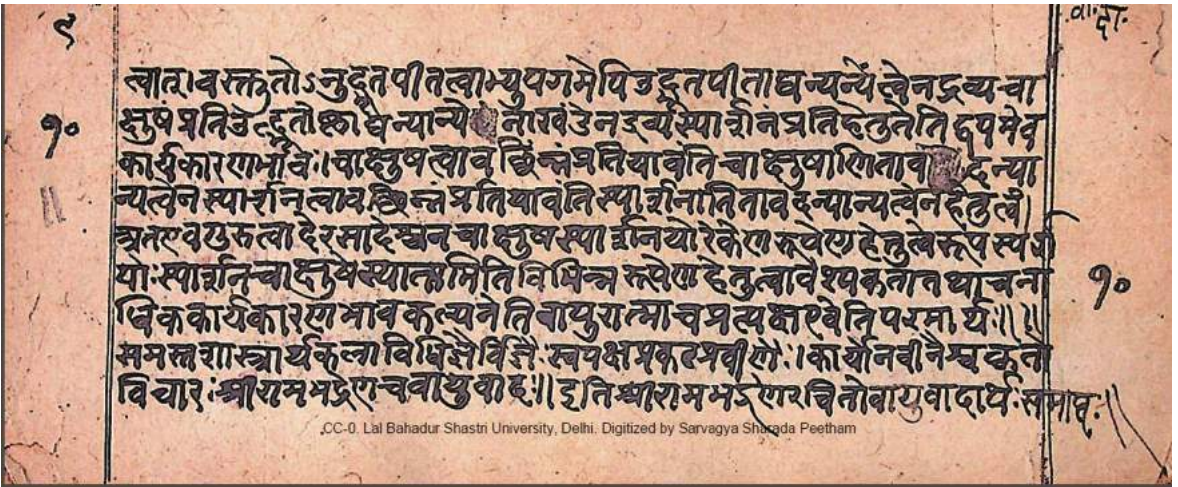 ९
वा. दा.
त्वात्। वस्तुतोऽनुद्भूतपीतत्वाभ्युपगमेपि उद्भूतपीताद्यन्यन्यत्वेन द्रव्यचा
क्षुषं प्रति उद्भूतोष्णाद्यन्यान्य नाखंडेन द्रव्यस्पार्शनं प्रति हेतुतेति द्वयमेव
१०
कार्यकारणभावः। चाक्षुषत्वावच्छिन्नंप्रति यावंति चाक्षुषाणि ताव दन्या
न्यत्वेन स्पार्शनत्वावच्छिन्नंप्रति यावंति स्पार्शनानि तावदन्यान्यत्वेन हेतुत्वं।
अतएव गुरुत्वादेरसादेश्च न चाक्षुषस्पार्शनयोरेकेण रूपेण हेतुत्वे रूपस्पर्श
योः स्पार्शनचाक्षुषे स्यातामिति विभिन्नरूपेण हेतुत्वावश्यकता तथाच ना
१०
धिककार्यकारणभावकल्पनेति वायुरात्माच प्रत्यक्षएवेति परमार्थः॥॥
समस्तशास्त्रार्थकलाविधिज्ञैर्विज्ञैः स्वपक्षप्रकटप्रवीणैः। कार्योनवीनैश्वकृतो
विचारः श्रीरामभद्रेण च वायुवादः॥ इति श्रीरामभद्रेण रचितो वायुवादार्थः समाप्तः॥
CC-0. Lal Bahadur Shastri University, Delhi. Digitized by Sarvagya Sharada Peetham